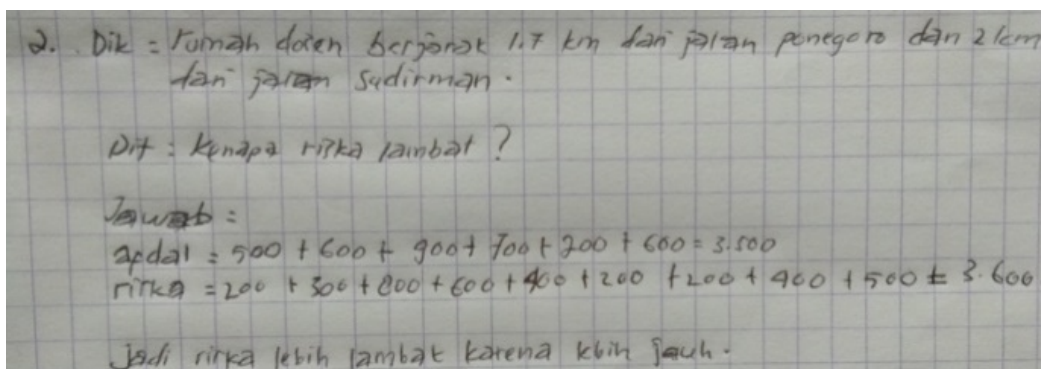 2. Dik = rumah doien berjarak 1.7 km dari jalan ponegoro dan 2 km
dari jalan sudirman.
Dit : kenapa riska lambat ?
Jawab =
apdal = 500 + 600 + 900 + 700 + 200 + 600 = 3.500
riska = 200 + 300 + 800 + 600 + 400 + 200 + 200 + 400 + 500 = 3.600
Jadi riska lebih lambat karena lebih jauh.